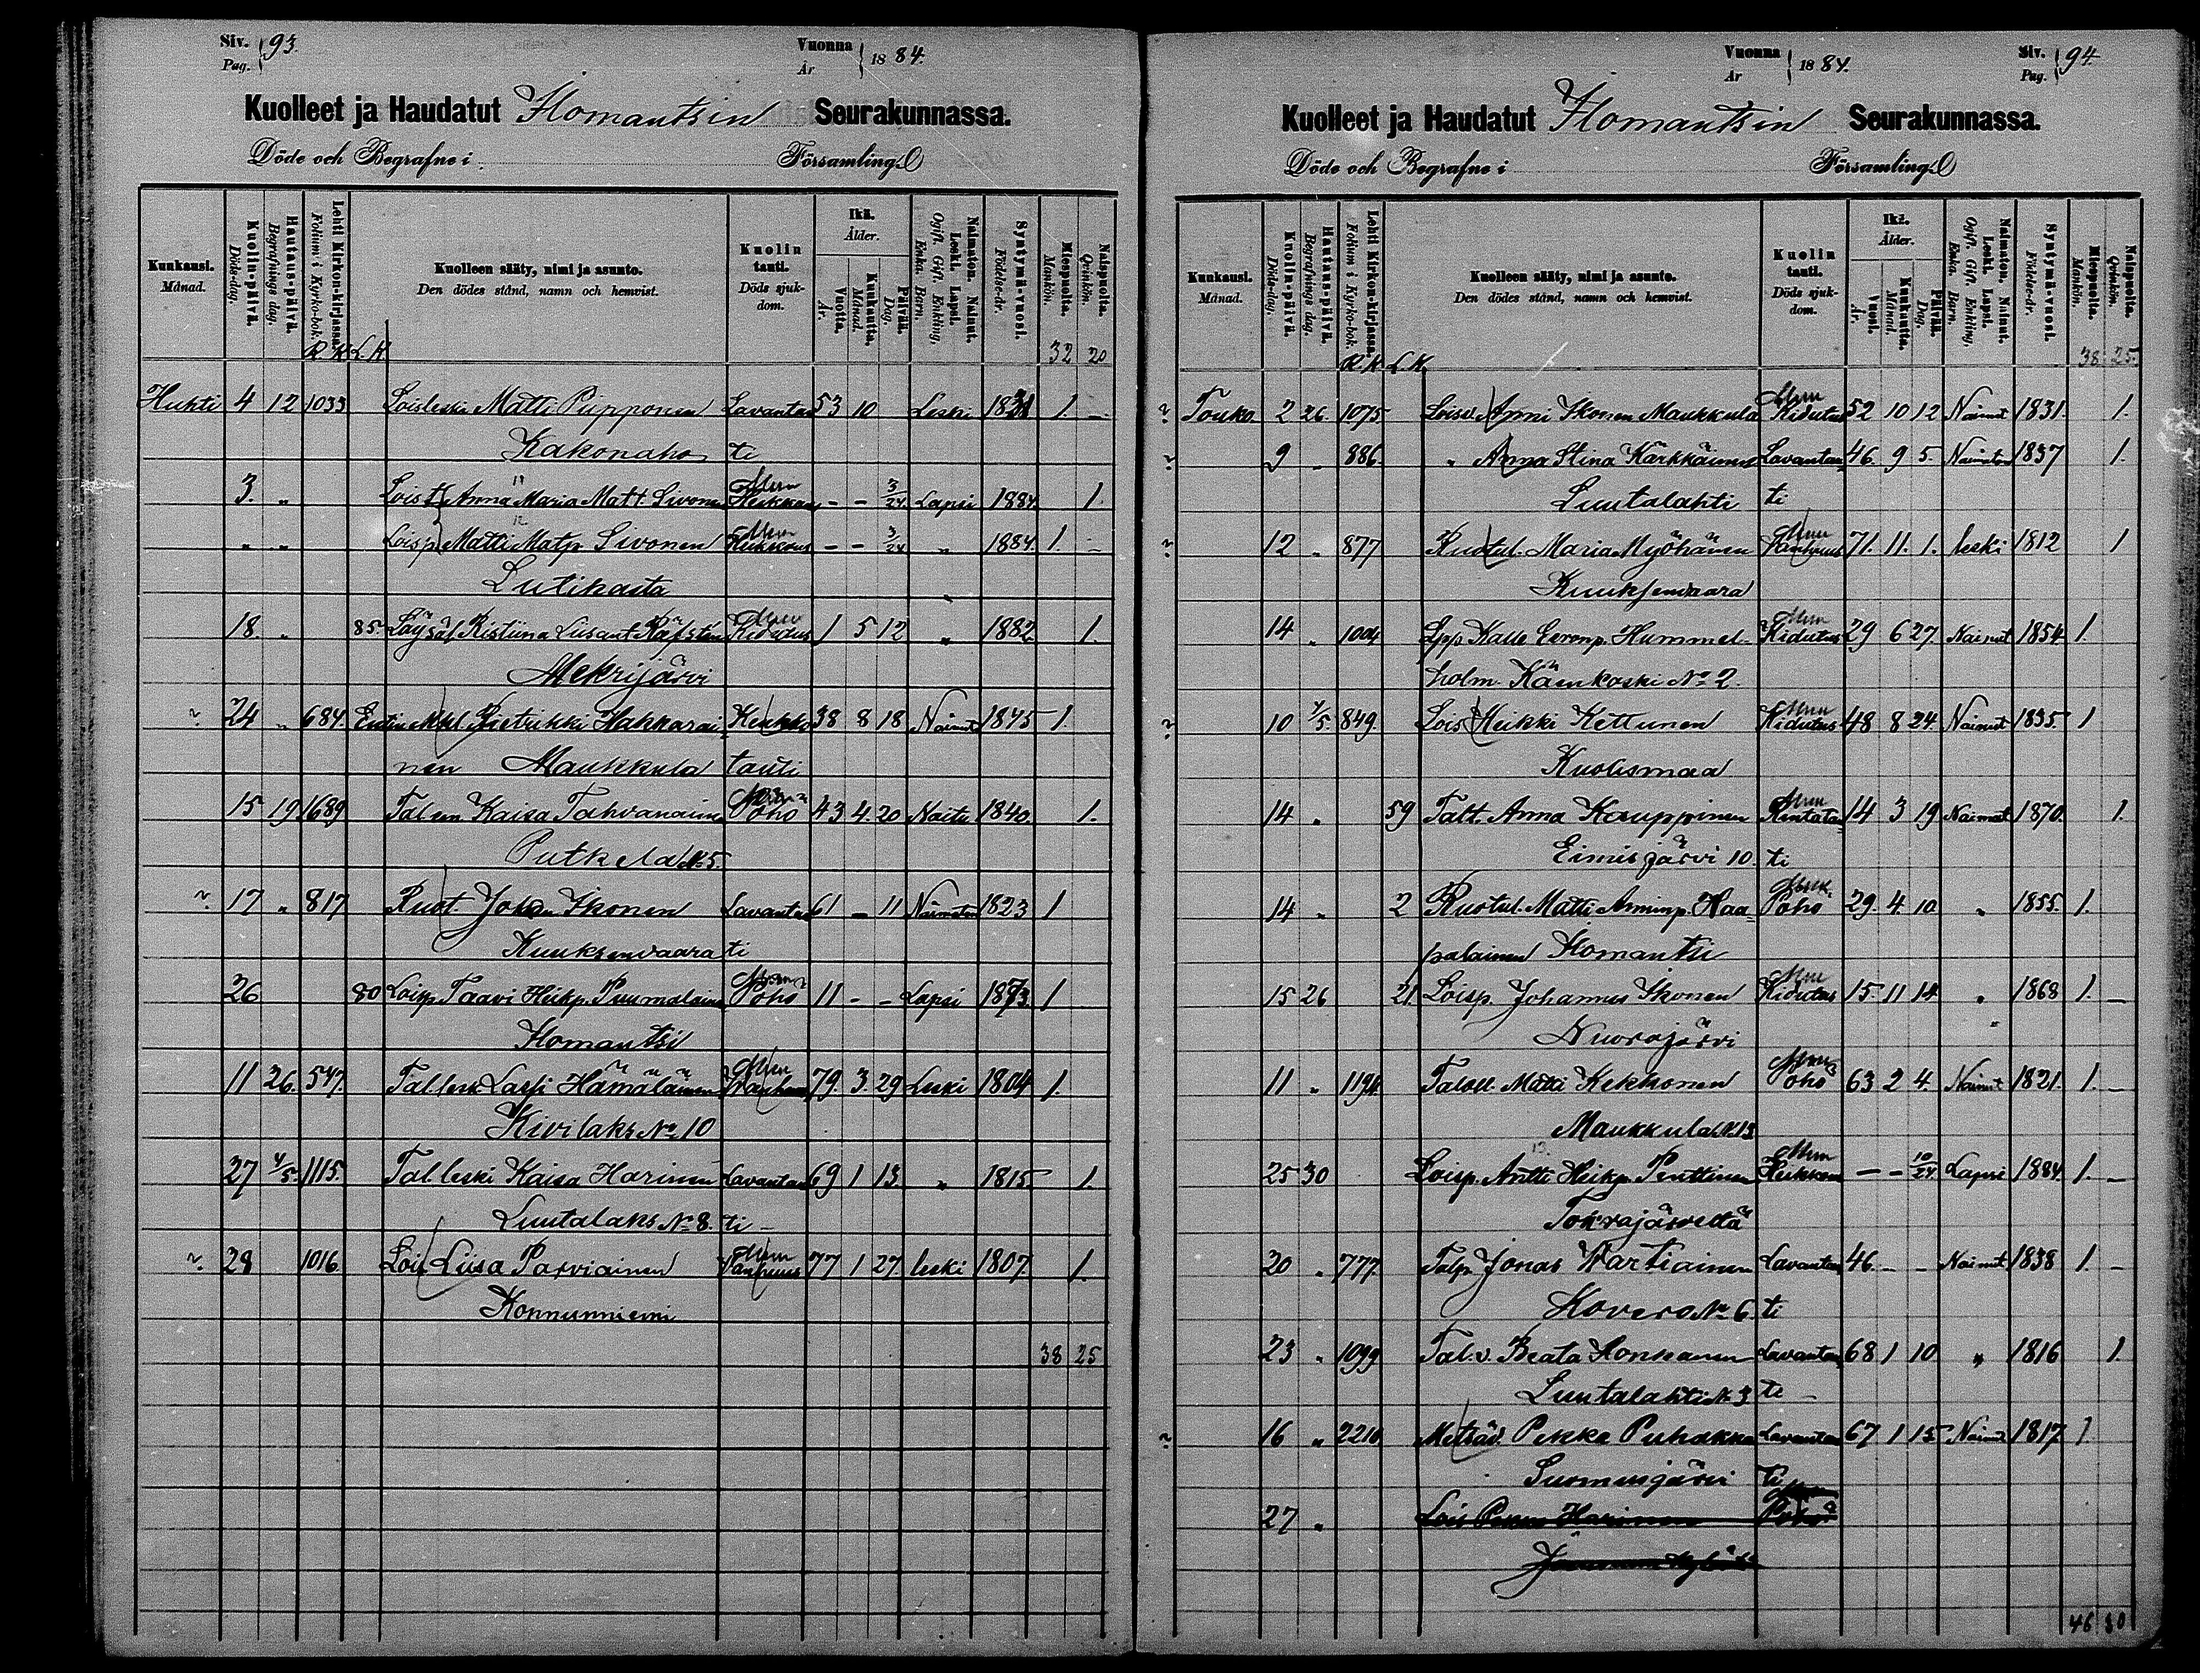 Siv. 93.
Pag.
Vuonna 1884.
År
Kuolleet ja Haudatut Ilomantsin Seurakunnassa.
Döde och Begrafne i Församling.
Kuukausi. Månad.
Kuolin-päivä. Döds-dag.
Hautaus-päivä. Begrafnings dag.
Lehti Kirkon-kirjassa. Folium i Kyrko-bok.
R.K. L.K.
Kuolleen sääty, nimi ja asunto. Den dödes stånd, namn och hemvist.
Kuolin tauti. Döds sjukdom.
Ikä. Ålder.
Vuotta. År.
Kuukautta. Månad.
Päivää. Dag.
Naimaton. Nainut. Leski. Lapsi. Ogift. Gift. Enkling. Enka. Barn.
Syntymä-vuosi. Födelse-år.
Miespuolta. Mankön.
Naispuolta. Qvinkön.
32 20
Huhti 4 12 1033 Loisleski Matti Piipponen Lavantau 53 10 Leski 1831 1. –
Kakonaho ti
3. „ Loist. Anna Maria Matt. Sivonen Heikkous – – 3/24 Lapsi 1884. 1.
„ „ Loisp. Matti Matp. Sivonen Heikkous – – 3/24 „ 1884. 1. –
Lutikasta
18. „ 85. Kidutus 1 5 12 „ 1882 1.
Mekrijärvi
24 „ 684. Pietrikki Hakkarai- Keuhko 38 8 18 Nainut 1845 1.
nen Maukkula tauti
15 19 1689 Kaisa Tahvanainen Poho 43 4. 20 Naitu 1840. 1.
Putkela N:5.
17 „ 817 Ruot. Johan Ikonen Lavantau 61 – 11 Naimaton 1823 1
Kuuksenvaara ti
26 80 Loisp. Taavi Heikp. Puumalainen Poho 11 – – Lapsi 1873. 1
Ilomantsi
11 26. 547. Tal. lesk. Lassi Hämäläinen Vanhuus 79. 3. 29 Leski 1804 1.
Kivilaks No 10
27 4/5. 1115. Tal. leski Kaisa Harinen Lavantau 69 1 13. „ 1815. 1.
Luutalaks No 8. ti –
28 1016 Lois Liisa Parviainen Vanhuus 77 1 27 leski 1807 1.
Konnunniemi
38 25
Vuonna 1884.
År
Siv. 94.
Pag.
Kuolleet ja Haudatut Ilomantsin Seurakunnassa.
Döde och Begrafne i Församling.
Kuukausi. Månad.
Kuolin-päivä. Döds-dag.
Hautaus-päivä. Begrafnings dag.
Lehti Kirkon-kirjassa. Folium i Kyrko-bok.
R.K. L.K.
Kuolleen sääty, nimi ja asunto. Den dödes stånd, namn och hemvist.
Kuolin tauti. Döds sjukdom.
Ikä. Ålder.
Vuosi. År.
Kuukautta. Månad.
Päivää. Dag.
Naimaton. Nainut. Leski. Lapsi. Ogift. Gift. Enkling. Enka. Barn.
Syntymä-vuosi. Födelse-år.
Miespuolta. Mankön.
Naispuolta. Qvinkön.
38. 25.
Touko. 2 26 1075. Loisv. Anni Ikonen Maukkula Kidutus 52 10 12 Nainut 1831. 1.
9 „ 886. „ Anna Stina Kärkkäinen Lavantau 46. 9 5. Naimaton 1837 1.
Luutalahti ti
12 „ 877 Ruotul. Maria Myöhänen Vanhuus 71. 11. 1. leski 1812 1
Kuuksenvaara
14 „ 1004 Kalle Eeronp. Hummel- Kidutus 29 6 27. Nainut 1854 1.
holm. Käenkoski No 2.
10 4/5. 849. Lois Heikki Kettunen Kidutus 48 8 24. Nainut 1835. 1
Kuolismaa
14 „ 59 Talt. Anna Kauppinen Rintatau 14 3 19 Naimat 1870. 1.
Eimisjärvi 10. ti
14 „ 2 Ruotul. Matti Haa- Poho 29. 4. 10 „ 1855. 1.
palainen Ilomantsi
15 26 21 Loisp. Johannes Ikonen Kidutus 15. 11 14 „ 1868 1. –
Nuorajärvi
11 „ 1194. Matti Kekkonen Poho 63 2 4. Nainut 1821. 1. –
Maukkula N:13
25 30 Loisp. Antti Heikp. Penttinen Heikkous – – 10/24 Lapsi 1884. 1. –
Tokrajärveltä
20 „ 777. Talp. Jonas Wartiainen Lavantau 46. – – Nainut 1838 1. –
Kovero No 6. ti
23 „ 1099 Tal. v. Beata Honkanen Lavantau 68 1 10 „ 1816 1.
Luutalahti N:3 ti –
16 „ 2216 Pekka Puhakka Lavantau 67 1 15 Nainut 1817 1
Suomusjärvi ti
27 „ Lois Harinen
46 30